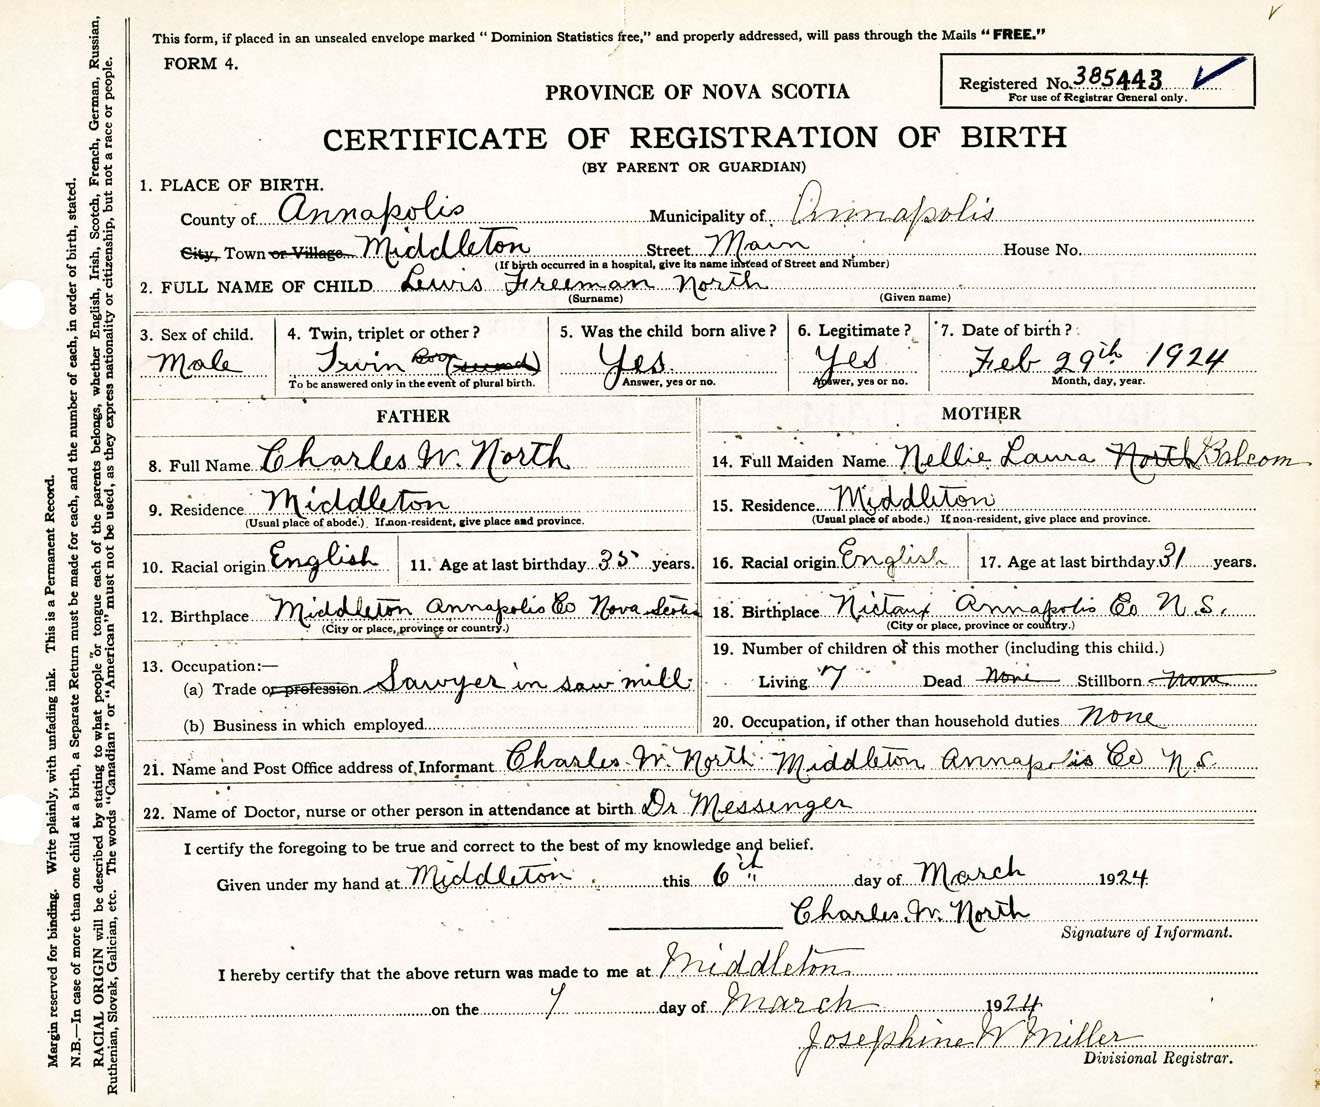 This form, if placed in an unsealed envelope marked "Dominion Statistics free," and properly addressed, will pass through the Mails "FREE."
FORM 4.
Registered No. 385443
For use of Registrar General only.
PROVINCE OF NOVA SCOTIA
CERTIFICATE OF REGISTRATION OF BIRTH
(BY PARENT OR GUARDIAN)
1. PLACE OF BIRTH.
County of Annapolis Municipality of Annapolis
City, Town or Village Middleton Street Main House No.
(If birth occurred in a hospital, give its name instead of Street and Number)
2. FULL NAME OF CHILD Lewis Freeman North
(Surname) (Given name)
3. Sex of child. 4. Twin, triplet or other? 5. Was the child born alive? 6. Legitimate? 7. Date of birth?
Male Twin Yes. Yes Feb 29th 1924
To be answered only in the event of plural birth. Answer, yes or no. Answer, yes or no. Month, day, year.
FATHER MOTHER
8. Full Name Charles W. North 14. Full Maiden Name Nellie Laura North Balcom
9. Residence Middleton 15. Residence Middleton
(Usual place of abode.) If non-resident, give place and province. (Usual place of abode.) If non-resident, give place and province.
10. Racial origin English 11. Age at last birthday 35 years. 16. Racial origin English 17. Age at last birthday 31 years.
12. Birthplace Middleton Annapolis Co Nova Scotia 18. Birthplace Nictaux Annapolis Co N.S.
(City or place, province or country.) (City or place, province or country.)
13. Occupation:— 19. Number of children of this mother (including this child.)
(a) Trade or profession Sawyer in saw mill Living 7 Dead None Stillborn None
(b) Business in which employed 20. Occupation, if other than household duties None
21. Name and Post Office address of Informant Charles W. North Middleton Annapolis Co N.S.
22. Name of Doctor, nurse or other person in attendance at birth Dr Messenger
I certify the foregoing to be true and correct to the best of my knowledge and belief.
Given under my hand at Middleton this 6th day of March 1924
Charles W. North
Signature of Informant.
I hereby certify that the above return was made to me at Middleton
on the 7 day of March 1924
Josephine W Miller
Divisional Registrar.
Margin reserved for binding. Write plainly, with unfading ink. This is a Permanent Record.
N.B.—In case of more than one child at a birth, a Separate Return must be made for each, and the number of each, in order of birth, stated.
RACIAL ORIGIN will be described by stating to what people or tongue each of the parents belongs, whether English, Irish, Scotch, French, German, Russian,
Ruthenian, Slovak, Galician, etc. The words "Canadian" or "American" must not be used, as they express nationality or citizenship, but not a race or people.